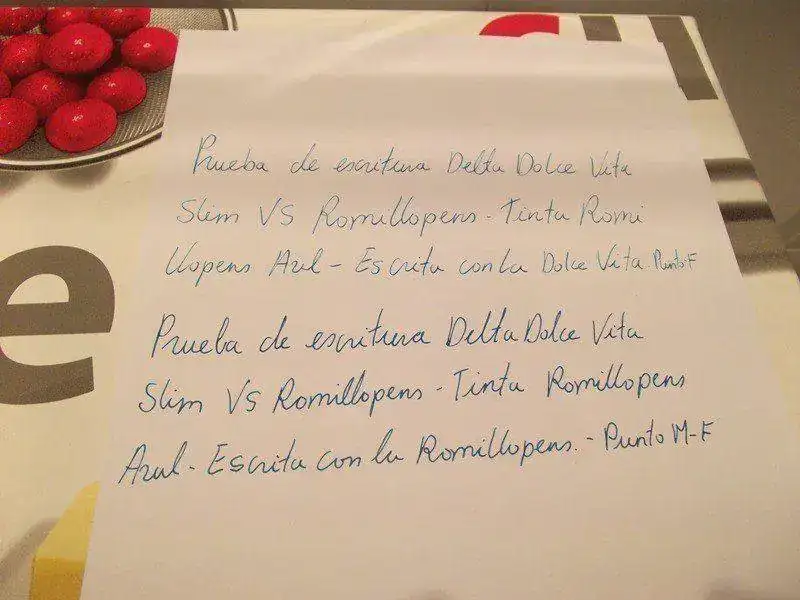 Prueba de escritura Delta Dolce Vita
Slim VS Romillopens - Tinta Romi
llopens Azul - Escrita con la Dolce Vita Punto F
Prueba de escritura Delta Dolce Vita
Slim VS Romillopens - Tinta Romillopens
Azul - Escrita con la Romillopens. - Punto M-F
e